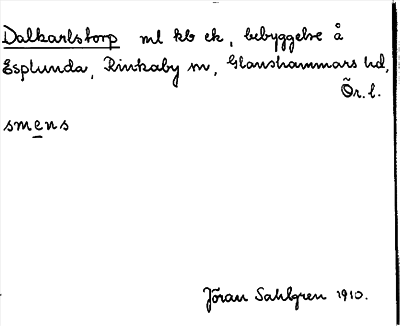 Dalkarlstorp ml kb ek, bebyggelse å
Esplunda, Rinkaby sn, Glanshammars hd,
Ör. l.
smens
Jöran Sahlgren 1910.